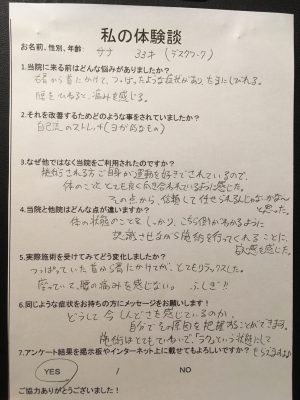 私の体験談
お名前、性別、年齢 サナ 33才 (デスクワーク)
1.当院に来る前はどんな悩みがありましたか?
右肩から首にかけて、つっぱったような症状があり、たまにしびれる。
腰をひねると、痛みを感じる。
2.それを改善するためどのような事をされていましたか?
自己流のストレッチ(ヨガ的なもの)
3.なぜ他ではなく当院をご利用されたのですか?
施術される方ご自身が運動を好きとされているので、
体のこととても良く向き合われているように感じた。
その点から、信頼して任せられるんじゃないかな〜
と思った。
4.当院と他院はどんな点が違いますか?
体の状態のことを しっかり、こちら側がわかるように
認識させながら施術を行ってくれることに、
安心感を感じた。
5.実際施術を受けてみてどう変化しましたか?
つっぱっていた首から肩にかけてが、とてもリラックスした。
座っていて、腰の痛みを感じない。 ふしぎ!!
6.同じような症状をお持ちの方にメッセージをお願いします!
どうして今しんどさを感じているのか、
自分でその原因を把握することができます。
施術はとてもていねいで、ラクという状態にして
もらえますよ♪
7.アンケート結果を掲示板やインターネット上に載せてもよろしいですか?
YES / NO
ご協力ありがとうございました!